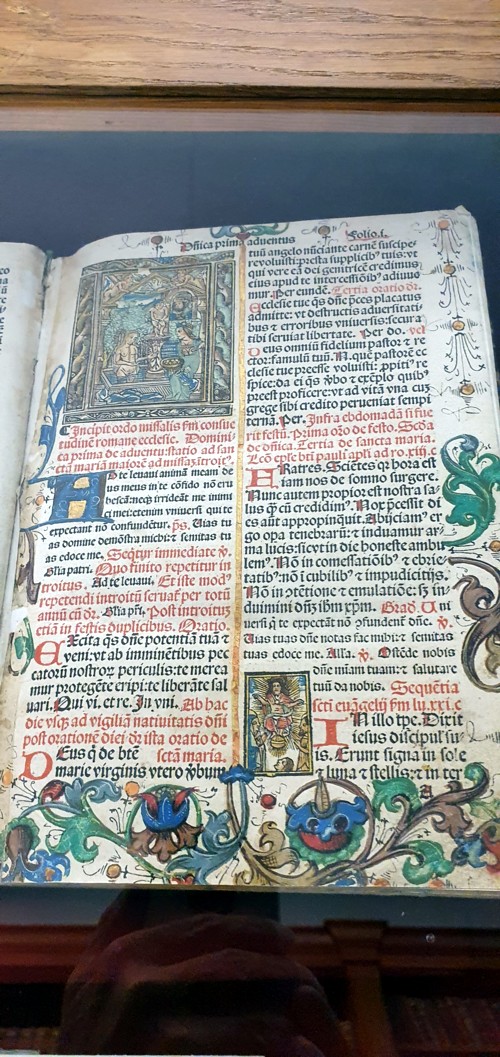 Officia prima aduentus
Folio.i.
Incipit ordo missalis ẜm consue
tudinē romane ecclesie. Domini-
ca prima de aduentu: statio ad san
ctā mariā maiorē ad missaȝ. Introit⁹.
AD te leuaui animā meam de
us meus in te cōfido nō eru
bescā: necȝ irrideāt me inimi
ci mei: etenim vniuersi qui te
expectant nō confundētur. p̄s. Uias tu
as domine demōstra michi: ⁊ semitas tu
as edoce me. Seq̄tur immediate ꝟ.
Gl'ia patri. Quo finito repetitur in
troitus. Ad te leuaui. Et iste mod⁹
repetendi introitū seruat̄ per totū
annū cū dr̄. Gl'ia p̄ri. Post introitū
etiā in festis duplicibus. Oratio.
EXcita q̄s dn̄e potentiā tuā ⁊
veni: vt ab imminētibus pec
catorū nostroꝝ periculis: te merea
mur protegēte eripi: te liberāte sal
uari. Qui vi. et re. In vni. Ab hac
die vsqȝ ad vigiliā natiuitatis dn̄i
post orationē diei dr̄ ista oratio de
sctā maria.
DEus q̄ de btē
marie virginis vtero ꝟbum
nūciante carnē suscipe
re voluisti: presta supplicib⁹ tuis: vt
qui vere eā dei genitricē credimus
eius apud te intercessiōib⁹ adiuue
mur. Per eundē. Tertia oratio dr̄.
Ecclesie tue q̄s dn̄e p̄ces placatus
admitte: vt destructis aduersitati-
bus ⁊ erroribus vniuersis: secura
tibi seruiat libertate. Per do. vel
Deus omniū fidelium pastor ⁊ re
ctor: famulū tuū. N. quē pastorē ec
clesie tue preesse voluisti: ꝓpiti⁹ re
spice: da ei q̄s ꝟbo ⁊ exēplo quib⁹
preest proficere: vt ad vitā vna cuȝ
grege sibi credito perueniat sempi
ternā. Per. Infra ebdomadā si fue
rit festū. Prima or̄o de festo. Scd̄a
de officio. Tertia de sancta maria.
Lc̄o ep̄le bti pauli apl'i ad ro. xiij. c
FRatres. Sciētes q̄ hora est
iam nos de somno surgere.
Nunc autem propior est nostra sa-
lus q̄ cū credidim⁹. Nox p̄cessit: di
es aūt appropinquit. Abijciam⁹ er
go oꝑa tenebrarū: ⁊ induamur ar-
ma lucis: sicvt in die honeste ambu
lem⁹. Nō in comessatiōib⁹ ⁊ ebrie-
tatib⁹: nō ī cubilib⁹ ⁊ impudicitijs.
Nō in ↄtētione ⁊ emulatiōe: sȝ in-
duimini dn̄ȝ ihm xp̄m. Grad. Uni
uersi q̄ te expectāt nō ↄfundent̄ dn̄e. ꝟ.
Uias tuas dn̄e notas fac michi: ⁊ semitas
tuas edoce me. Alla. ꝟ. Ostēde nobis
dn̄e miam tuam: ⁊ salutare
tuū da nobis. Sequētia
scti euāgelij ẜm lu. xxi. c
IN illo tp̄e. Dixit
iesus discipul' su
is. Erunt signa in sole
⁊ luna ⁊ stellis: ⁊ in ter